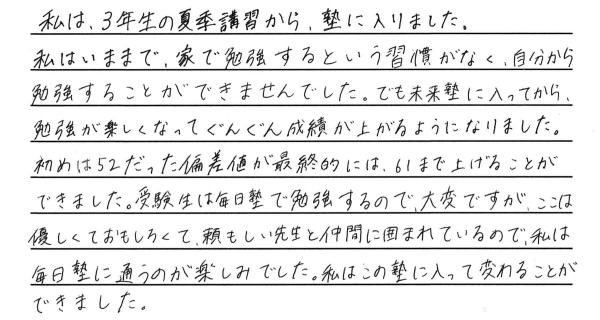 私は、3年生の夏季講習から、塾に入りました。
私はいままで、家で勉強するという習慣がなく、自分から
勉強することができませんでした。でも未来塾に入ってから、
勉強が楽しくなってぐんぐん成績が上がるようになりました。
初めは52だった偏差値が最終的には、61まで上げることが
できました。受験生は毎日塾で勉強するので、大変ですが、ここは
優しくておもしろくて、頼もしい先生と仲間に囲まれているので、私は
毎日塾に通うのが楽しみでした。私はこの塾に入って変わることが
できました。